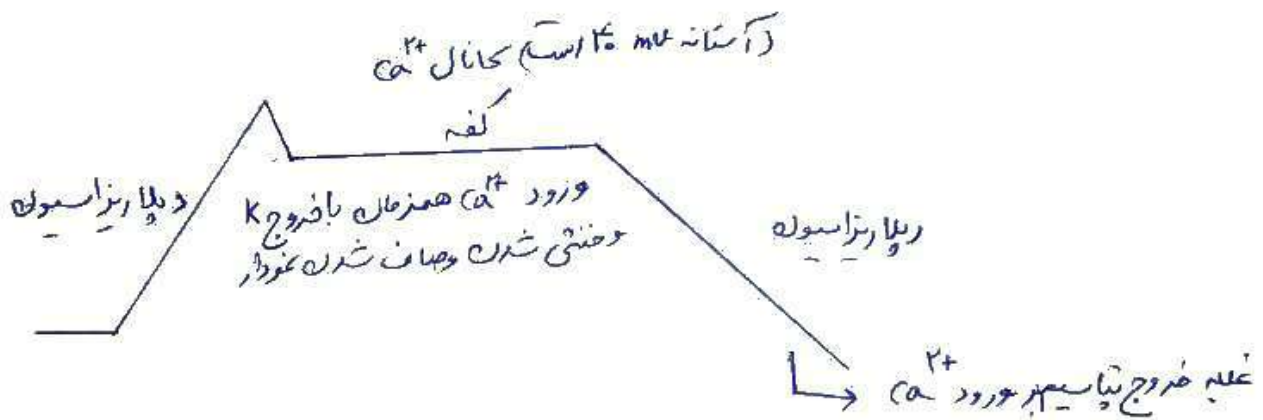 (آستانه ۴۰ mv است) کانال Ca²⁺
کفه
دپلاریزاسیون
ورود Ca²⁺ همزمان با خروج K
و خنثی شدن و صاف شدن نمودار
رپلاریزاسیون
غلبه خروج پتاسیم بر ورود Ca²⁺